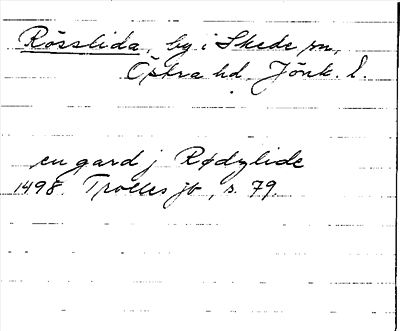 Rösslida, by i Skede sn,
Östra hd, Jönk. l.
en gard j Rødzlide
1498. Trolles jb, s. 79.